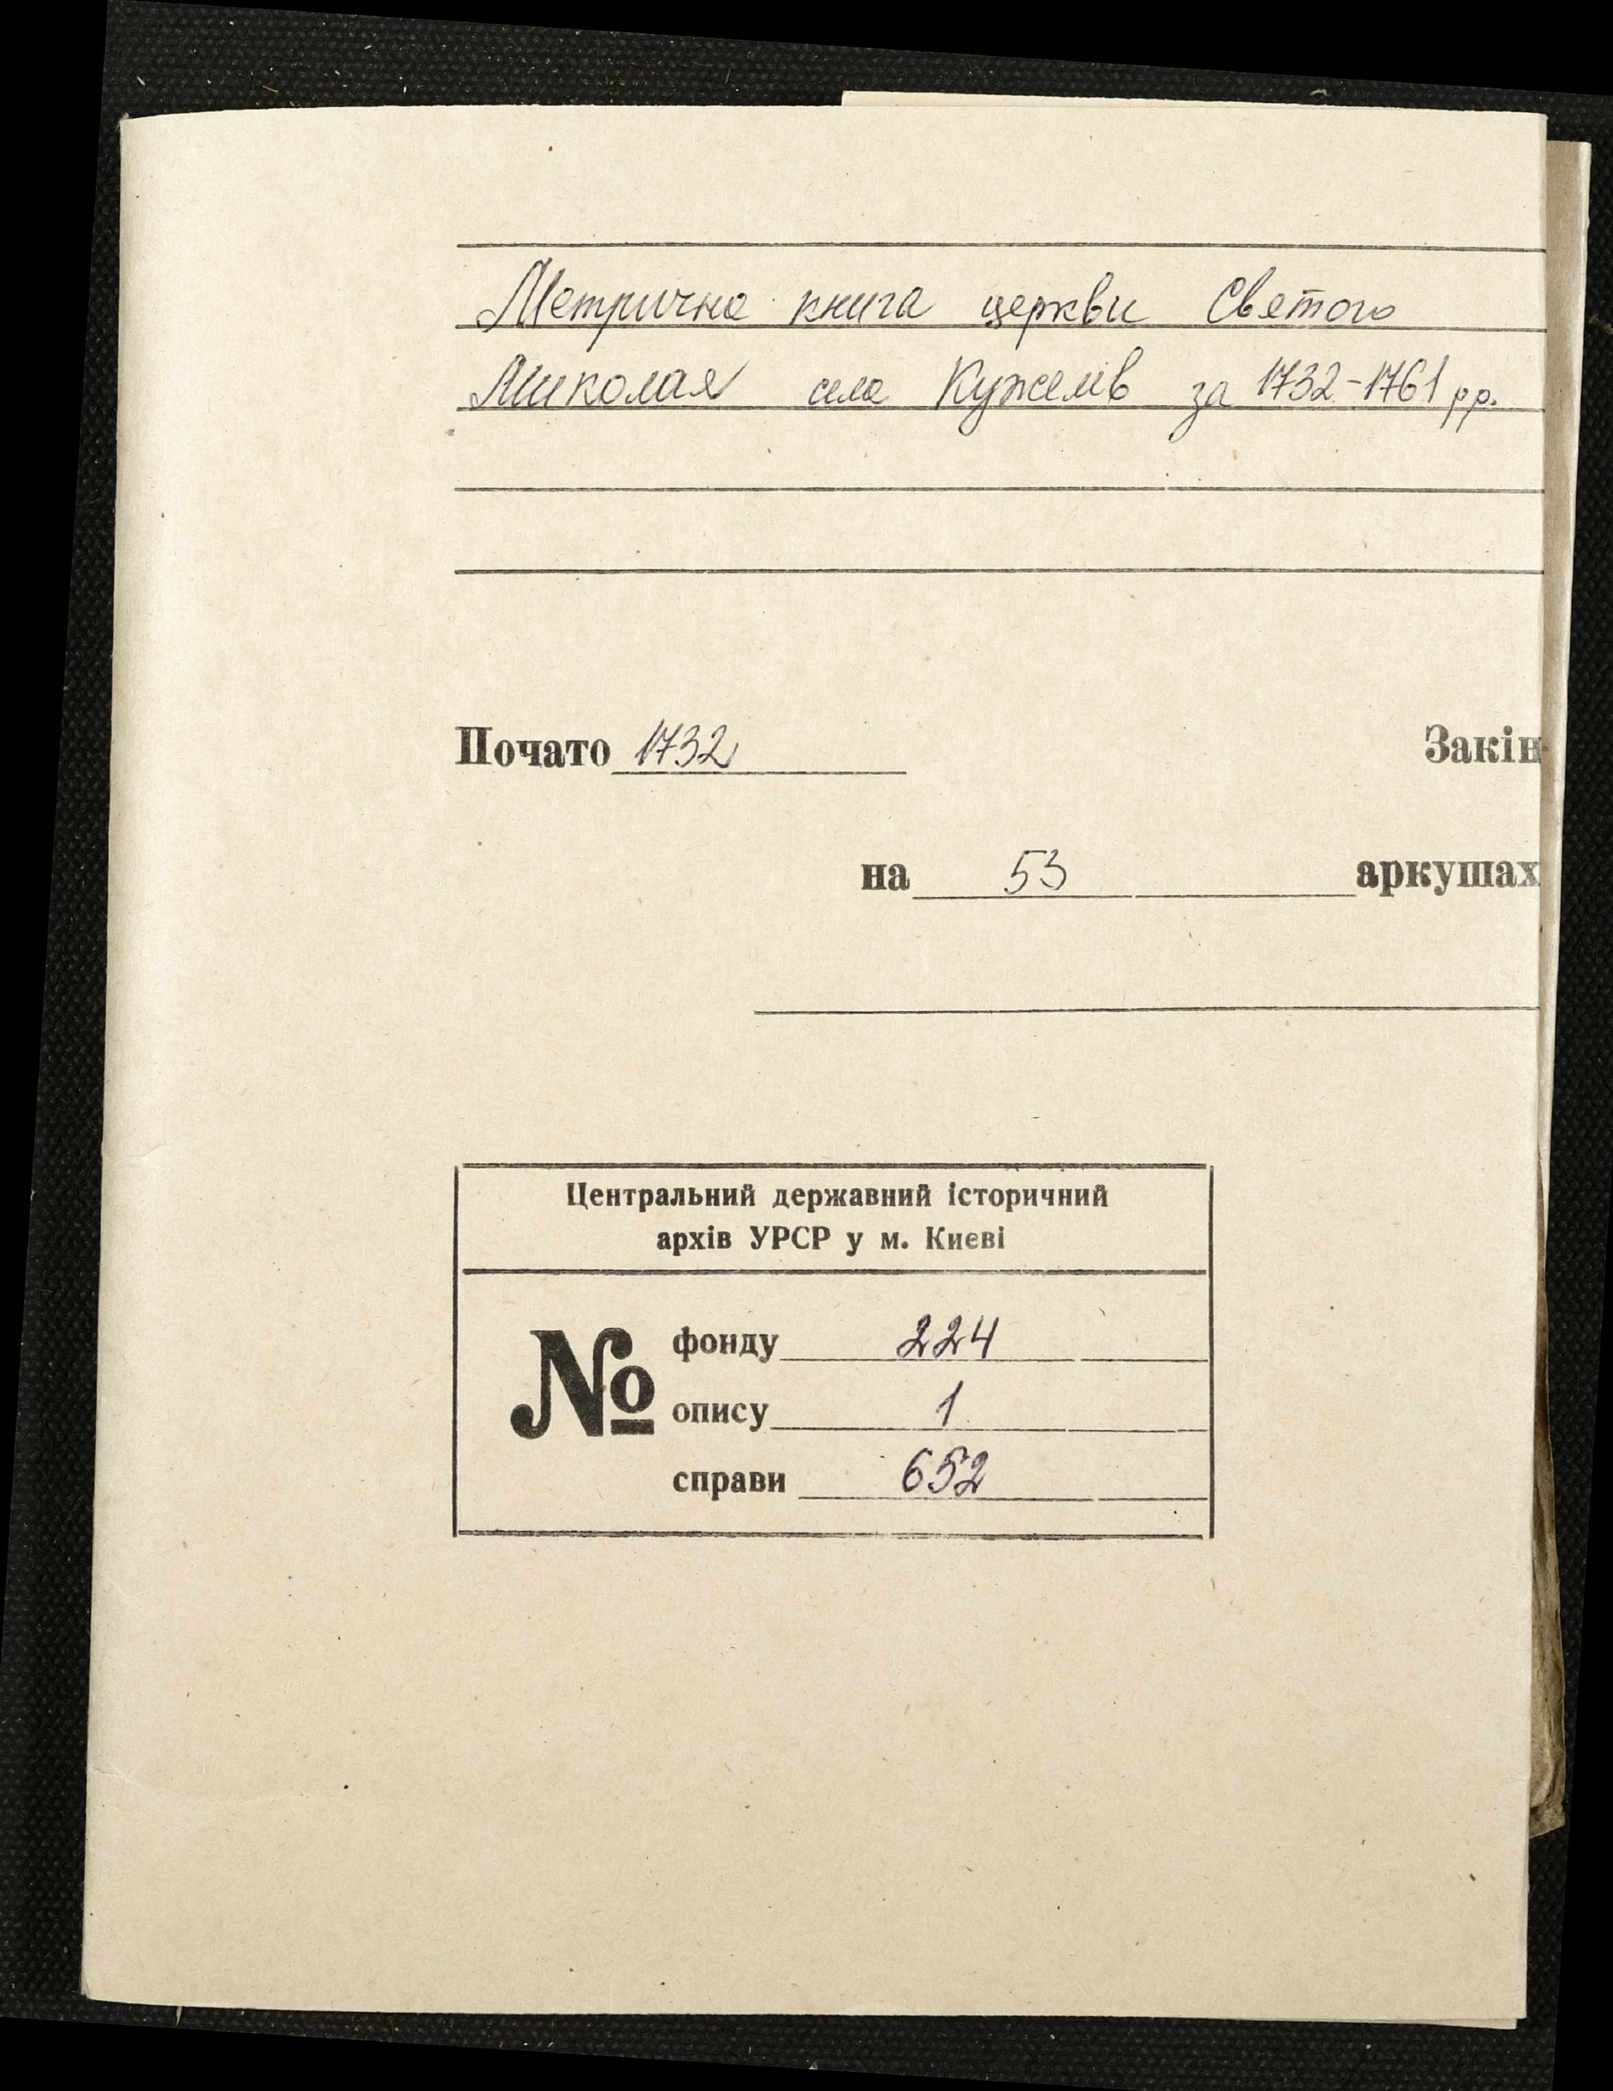 Метрична книга церкви Святого
Миколая села Кужелів за 1732-1761 рр.
Почато 1732 Закін
на 53 аркушах
Центральний державний історичний
архів УРСР у м. Києві
№ фонду 224
опису 1
справи 652